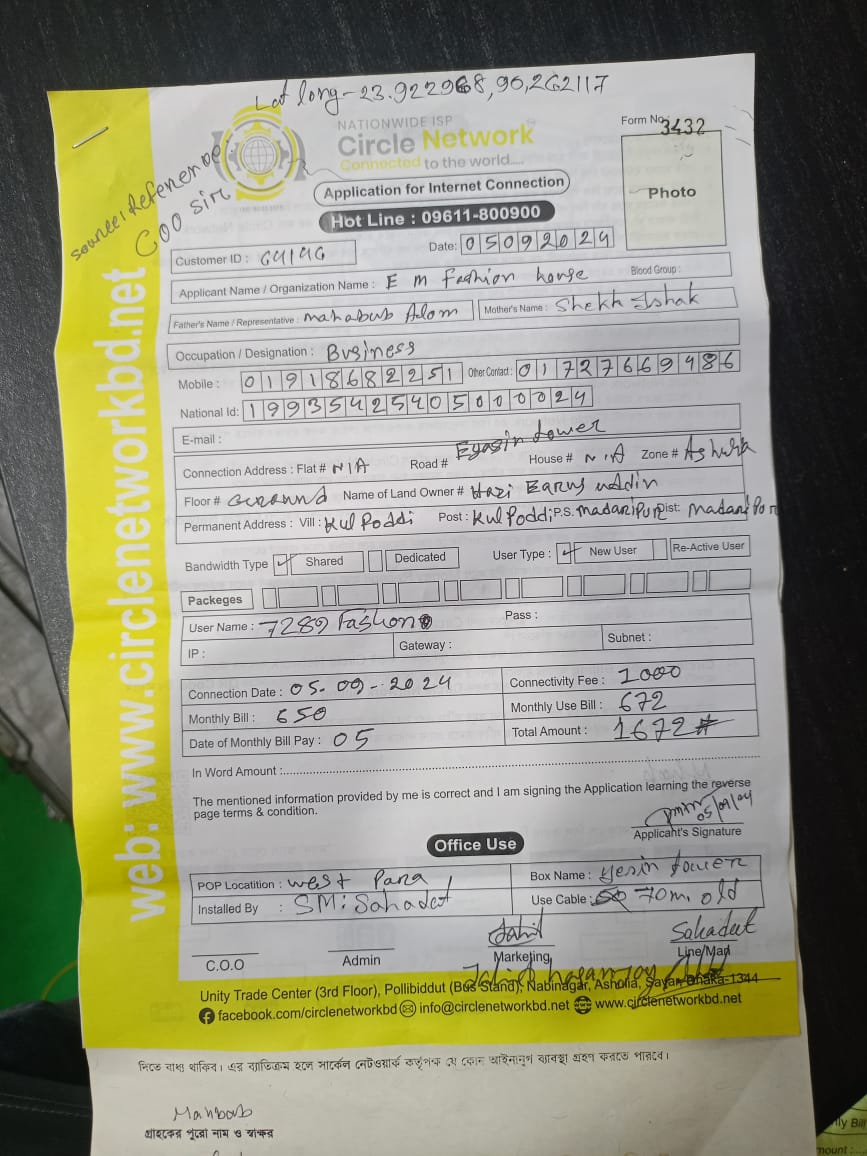 Lat long - 23.922968, 90,262117
NATIONWIDE ISP
Circle Network
Connected to the world....
Form No. 3432
Source: Reference
COO sir
Photo
Application for Internet Connection
Hot Line : 09611-800900
Customer ID : G4146
Date: 05092024
Applicant Name / Organization Name : E m Fashion house Blood Group :
Father's Name / Representative : mahabub Alom Mother's Name : Shekh Ishak
Occupation / Designation : Business
Mobile : 01918682251 Other Contact : 01727669486
National Id: 19935425405000024
E-mail :
Connection Address : Flat # N/A Road # Eyasin tower House # N/A Zone # Ashulia
Floor # Guraund Name of Land Owner # Hazi Earus uddin
Permanent Address : Vill : Kul Poddi Post : Kul Poddi P.S. madaripur Dist: madaripor
Bandwidth Type Shared Dedicated User Type : New User Re-Active User
Packeges
User Name : 7289 Fashion Pass :
IP : Gateway : Subnet :
Connection Date : 05-09-2024 Connectivity Fee : 1000
Monthly Bill : 650 Monthly Use Bill : 672
Date of Monthly Bill Pay : 05 Total Amount : 1672#
In Word Amount :
The mentioned information provided by me is correct and I am signing the Application learning the reverse
page terms & condition.
05/09/24
Applicant's Signature
Office Use
POP Locatition : west Para Box Name : yesin tower
Installed By : SM: Sahadat Use Cable : 70m. old
Jahid Sahadat
C.O.O Admin Marketing Line/Man
Unity Trade Center (3rd Floor), Pollibiddut (Bus Stand), Nabinagar, Ashulia, Savar, Dhaka-1344
facebook.com/circlenetworkbd info@circlenetworkbd.net www.circlenetworkbd.net
web: www.circlenetworkbd.net
দিতে বাধ্য থাকিব। এর ব্যাতিক্রম হলে সার্কেল নেটওয়ার্ক কর্তৃপক্ষ যে কোন আইনানুগ ব্যবস্থা গ্রহণ করতে পারবে।
Mahbub
গ্রাহকের পুরো নাম ও স্বাক্ষর